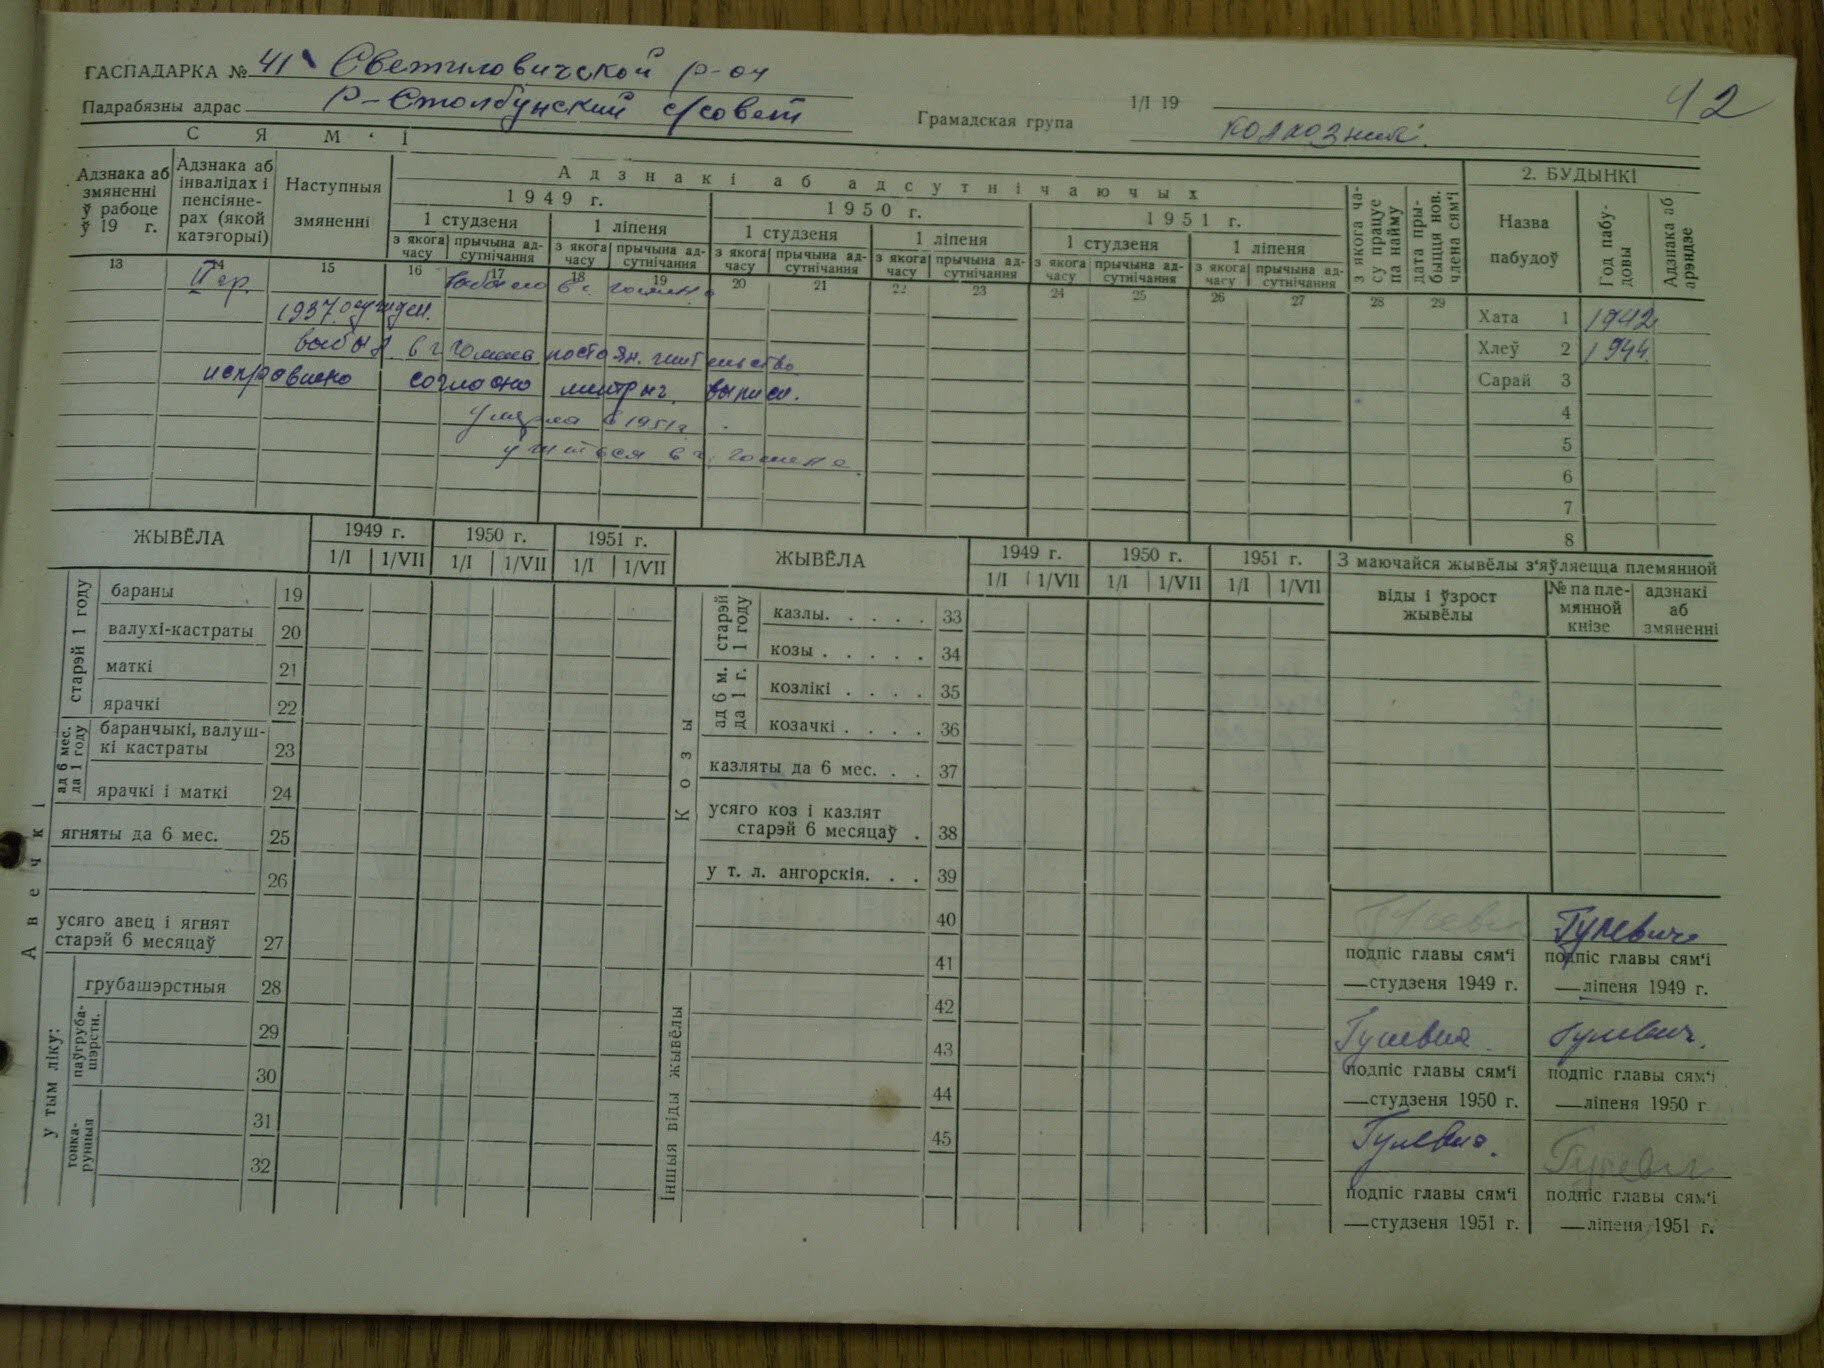 ГАСПАДАРКА № 41 Светиловичской р-он
Падрабязны адрас Р-Столбунский с/совет
Грамадская група
1/I 19
колхозник
42
СЯМ'І
Адзнака аб змяненні ў рабоце ў 19 г.
Адзнака аб інвалідах і пенсіяне-рах (якой катэгорыі)
Наступныя змяненні
Адзнакі аб адсутнічаючых
1949 г. 1950 г. 1951 г.
1 студзеня 1 ліпеня 1 студзеня 1 ліпеня 1 студзеня 1 ліпеня
з якога часу прычына ад-сутнічання з якога часу прычына ад-сутнічання з якога часу прычына ад-сутнічання з якога часу прычына ад-сутнічання з якога часу прычына ад-сутнічання з якога часу прычына ад-сутнічання
з якога ча-су працуе па найму
дата пры-быцця нов. члена сям'і
2. БУДЫНКІ
Назва пабудоў
Год пабу-довы
Адзнака аб арэндзе
13 14 15 16 17 18 19 20 21 22 23 24 25 26 27 28 29
II гр.
1937 осужден.
выбыл в г. Гомель постоян. жительство
исправлено согласно метрич. выписи.
умерла в 1951 г.
учится в г. Гомеле
Хата 1 1942
Хлеў 2 1944
Сарай 3
4
5
6
7
8
ЖЫВЁЛА
1949 г. 1950 г. 1951 г.
1/I 1/VII 1/I 1/VII 1/I 1/VII
Авечкі
старэй 1 году
бараны 19
валухі-кастраты 20
маткі 21
ярачкі 22
ад 6 мес. да 1 году
баранчыкі, валуш-кі кастраты 23
ярачкі і маткі 24
ягняты да 6 мес. 25
26
усяго авец і ягнят
старэй 6 месяцаў 27
у тым ліку:
грубашэрстныя 28
паўгруба-шэрстн.
29
30
тонка-рунныя
31
32
ЖЫВЁЛА
1949 г. 1950 г. 1951 г.
1/I 1/VII 1/I 1/VII 1/I 1/VII
Козы
старэй 1 году
казлы. . . . . 33
козы . . . . . 34
ад 6 м. да 1 г.
козлікі . . . . 35
козачкі . . . . 36
казляты да 6 мес. . . 37
усяго коз і казлят
старэй 6 месяцаў . 38
у т. л. ангорскія. . . 39
40
41
Іншыя віды жывёлы
42
43
44
45
З маючайся жывёлы з'яўляецца племянной
віды і ўзрост жывёлы
№ па пле-мянной кнізе
адзнакі аб змяненні
Гулевич Гулевич
подпіс главы сям'і подпіс главы сям'і
—студзеня 1949 г. —ліпеня 1949 г.
Гулевич. Гулевич.
подпіс главы сям'і подпіс главы сям'і
—студзеня 1950 г. —ліпеня 1950 г
Гулевич. Гулевич
подпіс главы сям'і подпіс главы сям'і
—студзеня 1951 г. —ліпеня 1951 г.